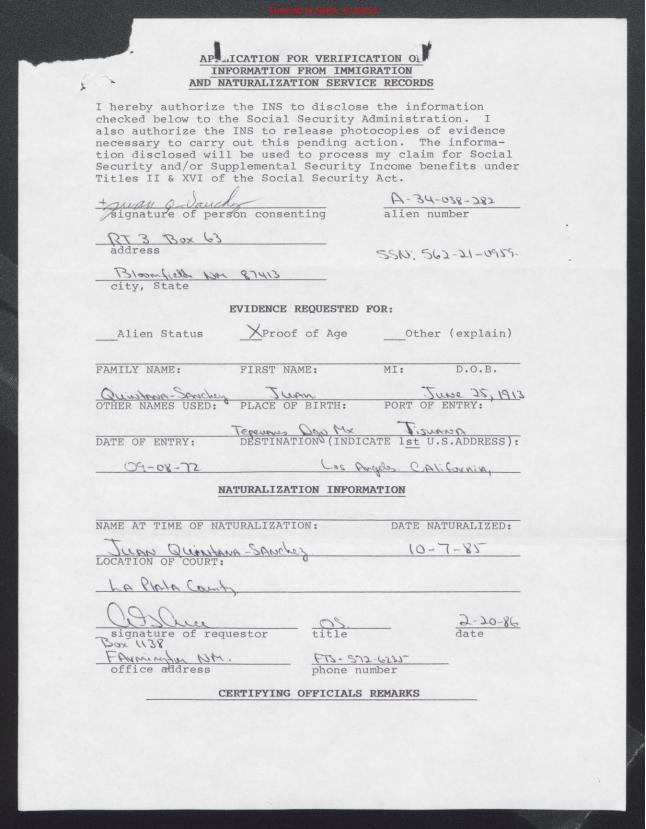 APPLICATION FOR VERIFICATION OF
INFORMATION FROM IMMIGRATION
AND NATURALIZATION SERVICE RECORDS
I hereby authorize the INS to disclose the information
checked below to the Social Security Administration. I
also authorize the INS to release photocopies of evidence
necessary to carry out this pending action. The informa-
tion disclosed will be used to process my claim for Social
Security and/or Supplemental Security Income benefits under
Titles II & XVI of the Social Security Act.
+ Juan Q Sanchez A-34-038-282
signature of person consenting alien number
RT 3 Box 63
address
SSN: 562-21-0959.
Bloomfield NM 87413
city, State
EVIDENCE REQUESTED FOR:
___Alien Status X Proof of Age ___Other (explain)
FAMILY NAME: FIRST NAME: MI: D.O.B.
Quintana-Sanchez Juan June 25, 1913
OTHER NAMES USED: PLACE OF BIRTH: PORT OF ENTRY:
Tepehuanes Dgo Mx Tijuana
DATE OF ENTRY: DESTINATION (INDICATE 1st U.S.ADDRESS):
09-08-72 Los Angeles California,
NATURALIZATION INFORMATION
NAME AT TIME OF NATURALIZATION: DATE NATURALIZED:
Juan Quintana-Sanchez 10-7-85
LOCATION OF COURT:
La Plata County
OS. 2-20-86
signature of requestor title date
Box 1138
Farmington NM. FTS-572-6235
office address phone number
CERTIFYING OFFICIALS REMARKS